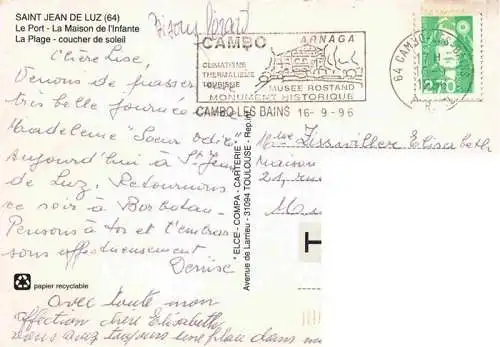 SAINT JEAN DE LUZ (64)
Le Port - La Maison de l'Infante
La Plage - coucher de soleil
Chère Lise,
Venons de passer
très belle journée
Madeleine "Sœur Odile"
Aujourd'hui à St Jean
de Luz. Retournons
ce soir à Barbotan
Pensons à toi et t'embras
sons affectueusement
Denise
papier recyclable
Avec toute mon
affection chère Elisabeth
vous avez toujours une place dans
"ELCE - COMPA - CARTERIE"
Avenue de Larrieu - 31094 TOULOUSE - Rep. int.
CAMBO ARNAGA
CLIMATISME
THERMALISME
TOURISME
MUSEE ROSTAND
MONUMENT HISTORIQUE
CAMBO LES BAINS 16-9-96
64 CAMBO
2,70
Elisabeth
Maison
21, rue
T